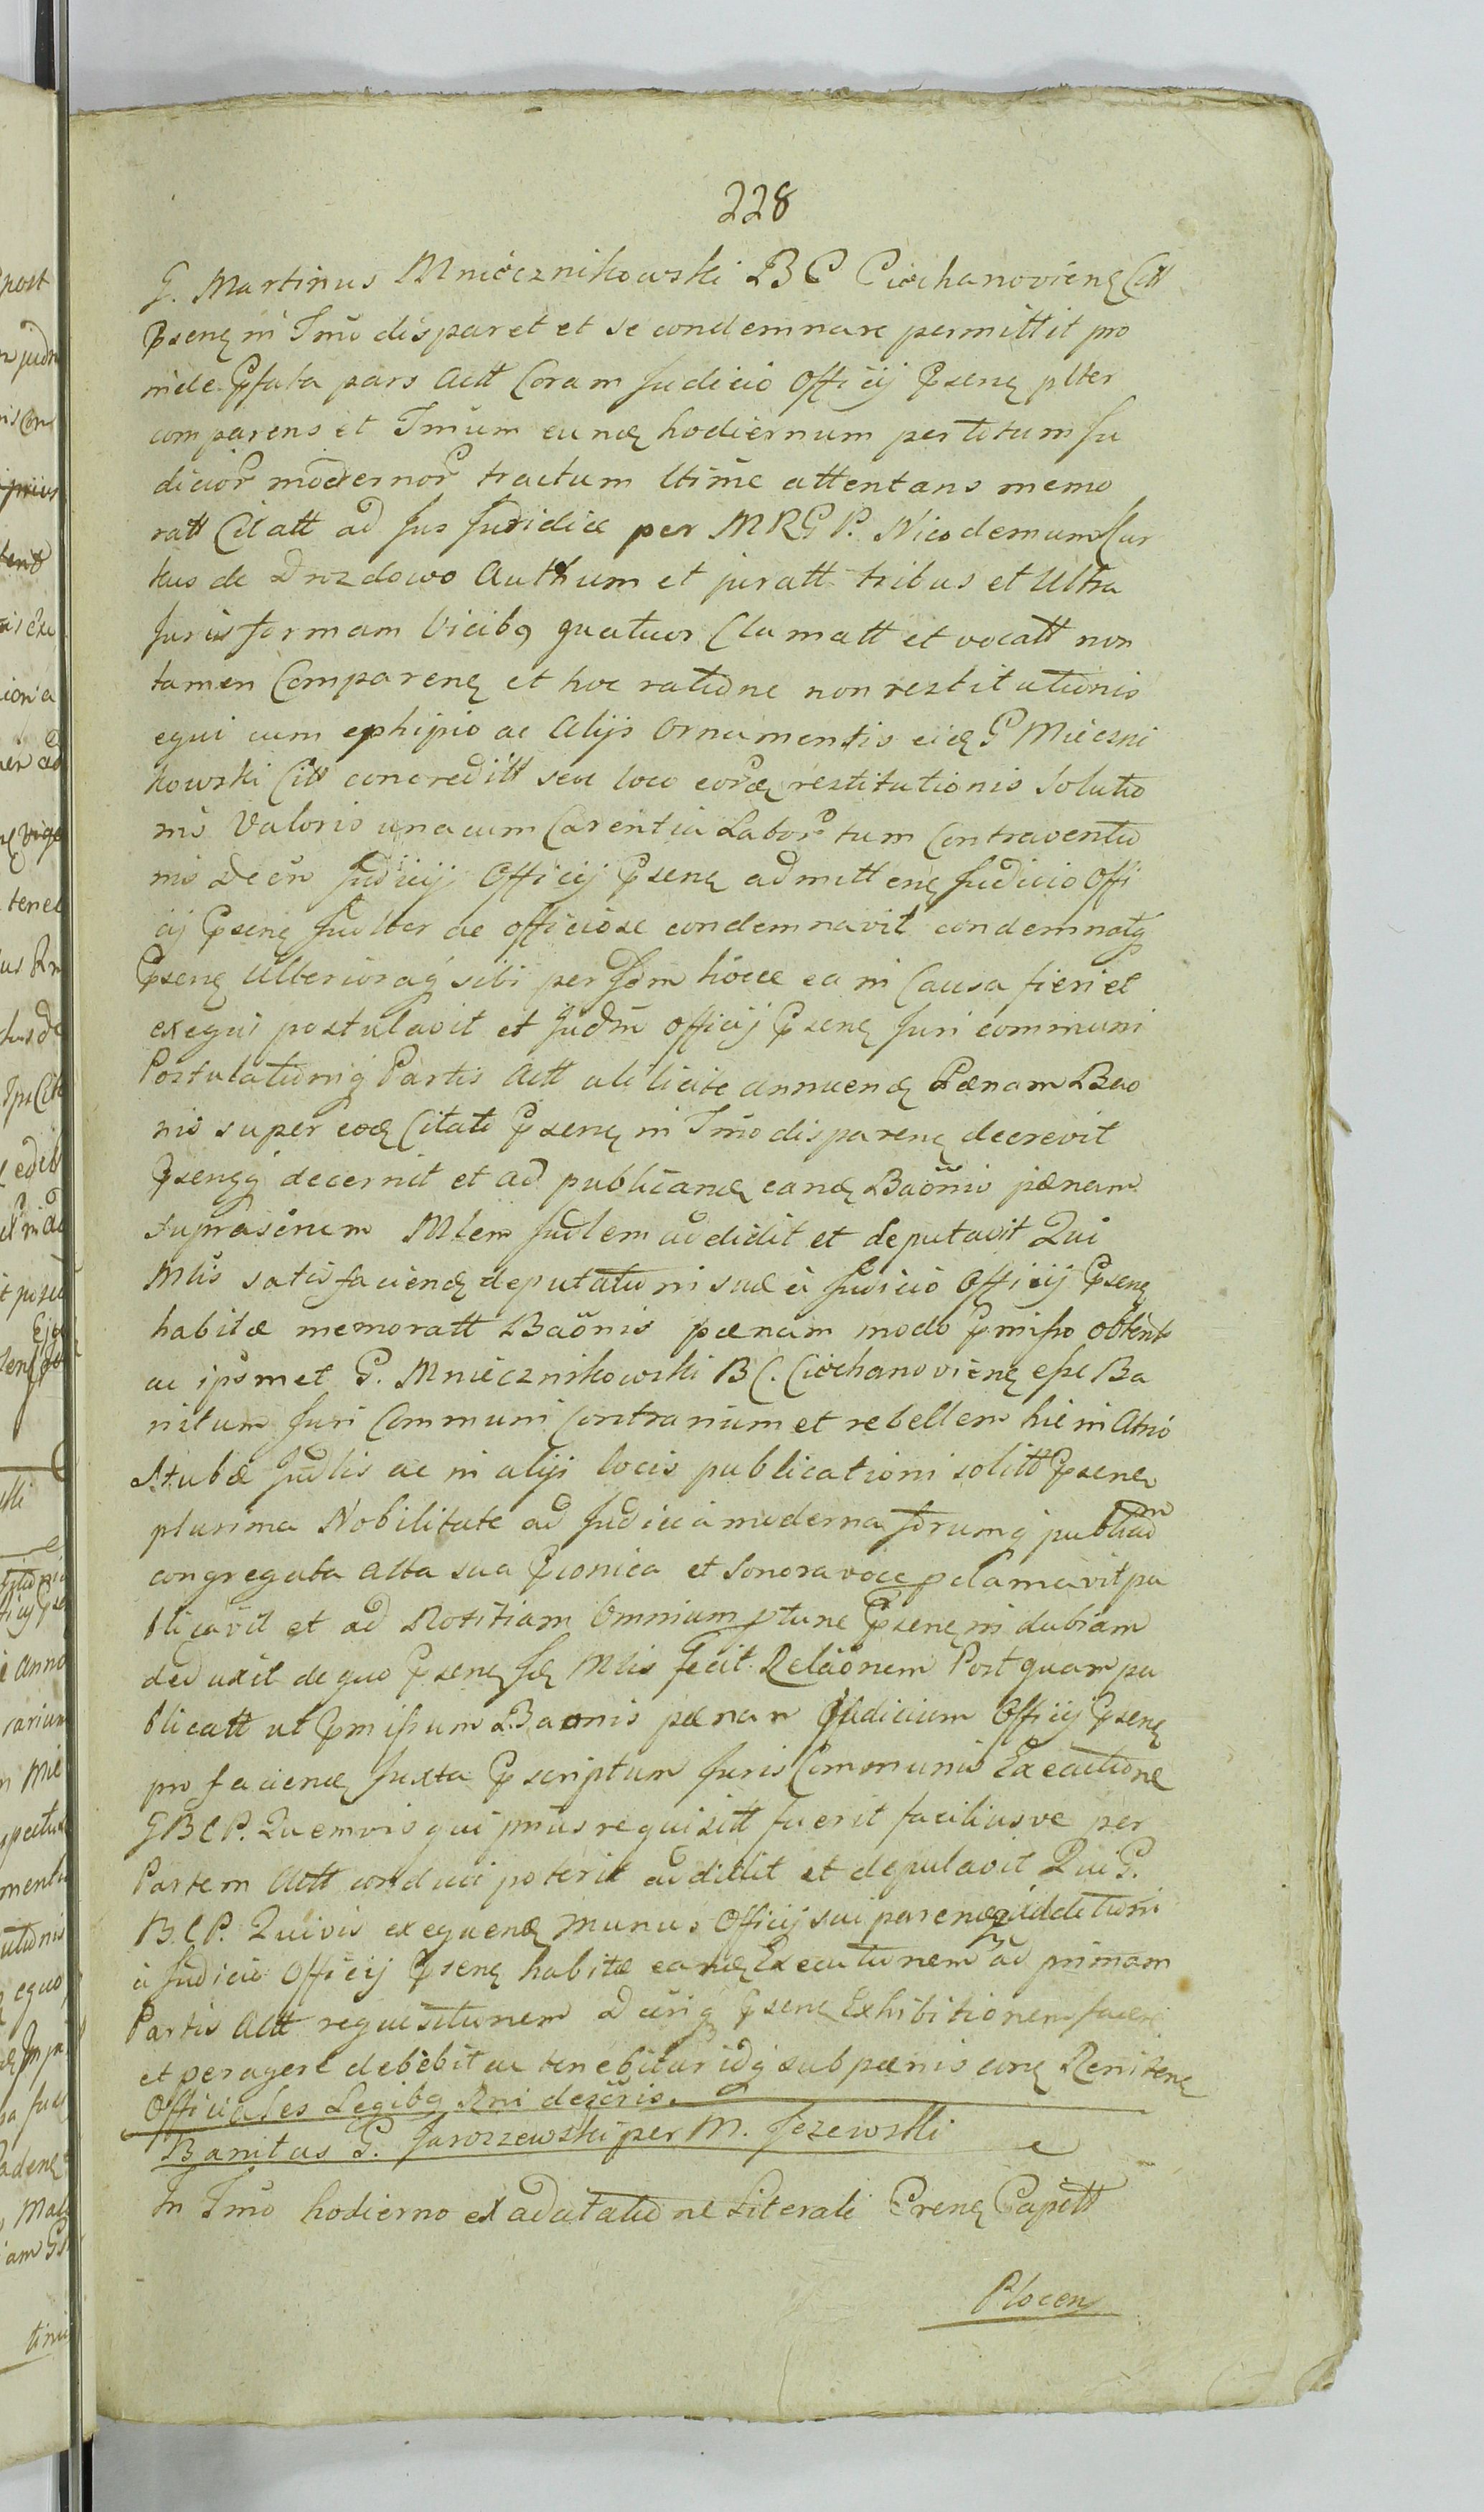 228
G. Martinus Mniecznikowski B C Ciechanovienȩ Citt
Pseñ in Tmo disparet et se condemnare permittit pro
inde Pfata pars Actt Coram Judicio Officij Psenȩ plter
comparens et Tmum eunđ hodiernum per totum Ju
dicior modernor tractum ltime attentans memo
ratt Citatt ad Jus Juridice per MRGP. Nicodemum Cur
tius de Drozdowo Authum et juratt tribus et Ultra
Juris formam Vicibq quatuor Clamatt et vocatt non
tamen Comparenȩ et hoc ratione non restitutionis
equi cum ephipio ac Alijs Ornamentis eidȩ G Mieczni
kowski Citt concreditt seu loco eorȩ restitutionis Solutio
nis Valoris una cum Carentia Labor tum Contraventio
nis Decr Judicij Officij Psenȩ admittenȩ Judicio Offi
cij Psenȩ Judlter ac officiose condemnavit condemnatq
Psenȩ Ulterioraq sibi per Jdm hocce ea in Causa fieri et
exequi postulavit et Judm Officij Psenȩ Juri communi
Postulationiq Partis Actt uti licite annuenđ Pænam Bao
nis super eođ Citato Psenȩ in Tmo disparenȩ decrevit
Psenqq decernit et ad publicanđ eanđ Baõnis pænam
suprascrum Mlem Judlem addidit et deputavit Qui
Mlis satisfacienđ deputationi suæ a Judicio Officij Psenȩ
habitæ memoratt Baõnis pænam modo Pmisso obtent
ac ipsmet G. Mniecznikowski B C. Ciechanovienȩ esse Ba
nitum Juri Communi Contrarium et rebellem hic in Atrio
Stubæ Judlis ac in alijs locis publicationi solitt Psenȩ
plurima Nobilitate ad Judicia moderna forumq publicum
congregata alta sua Pconica et Sonora voce pclamavit pu
blicavit et ad Notitiam Omnium ptunc Psenȩ indubiam
deduxit de quo Psenȩ Jđ Mlis fecit Relaõnem Postquam pu
blicatt ut Pmissum Baonis pænam Judicium Officij Psenȩ
pro facienđ Juxta Pscriptum Juris Communis Executione
GBCP. Quemvis qui prius requisitt fuerit faciliusve per
Partem Actt conduci poterit addidit et deputavit Qui G.
B.C.P. Quivis exequenđ Munus Officij sui parenđ additioni
a Judicio Officij Psenȩ habitæ eanđ Executionem ad primam
Partis Actt requisitionem Dcriq Psenȩ Exhibitionem facere
et peragere debebit ac tenebitur idq sub pænis conȩ Renitenȩ
Officiales Legibq Rni descris.
Banitus G. Jaroszewski per M. Jezewski
In Tmo hodierno ex adcitatione Literali Prenȩ Capitt
Plocen